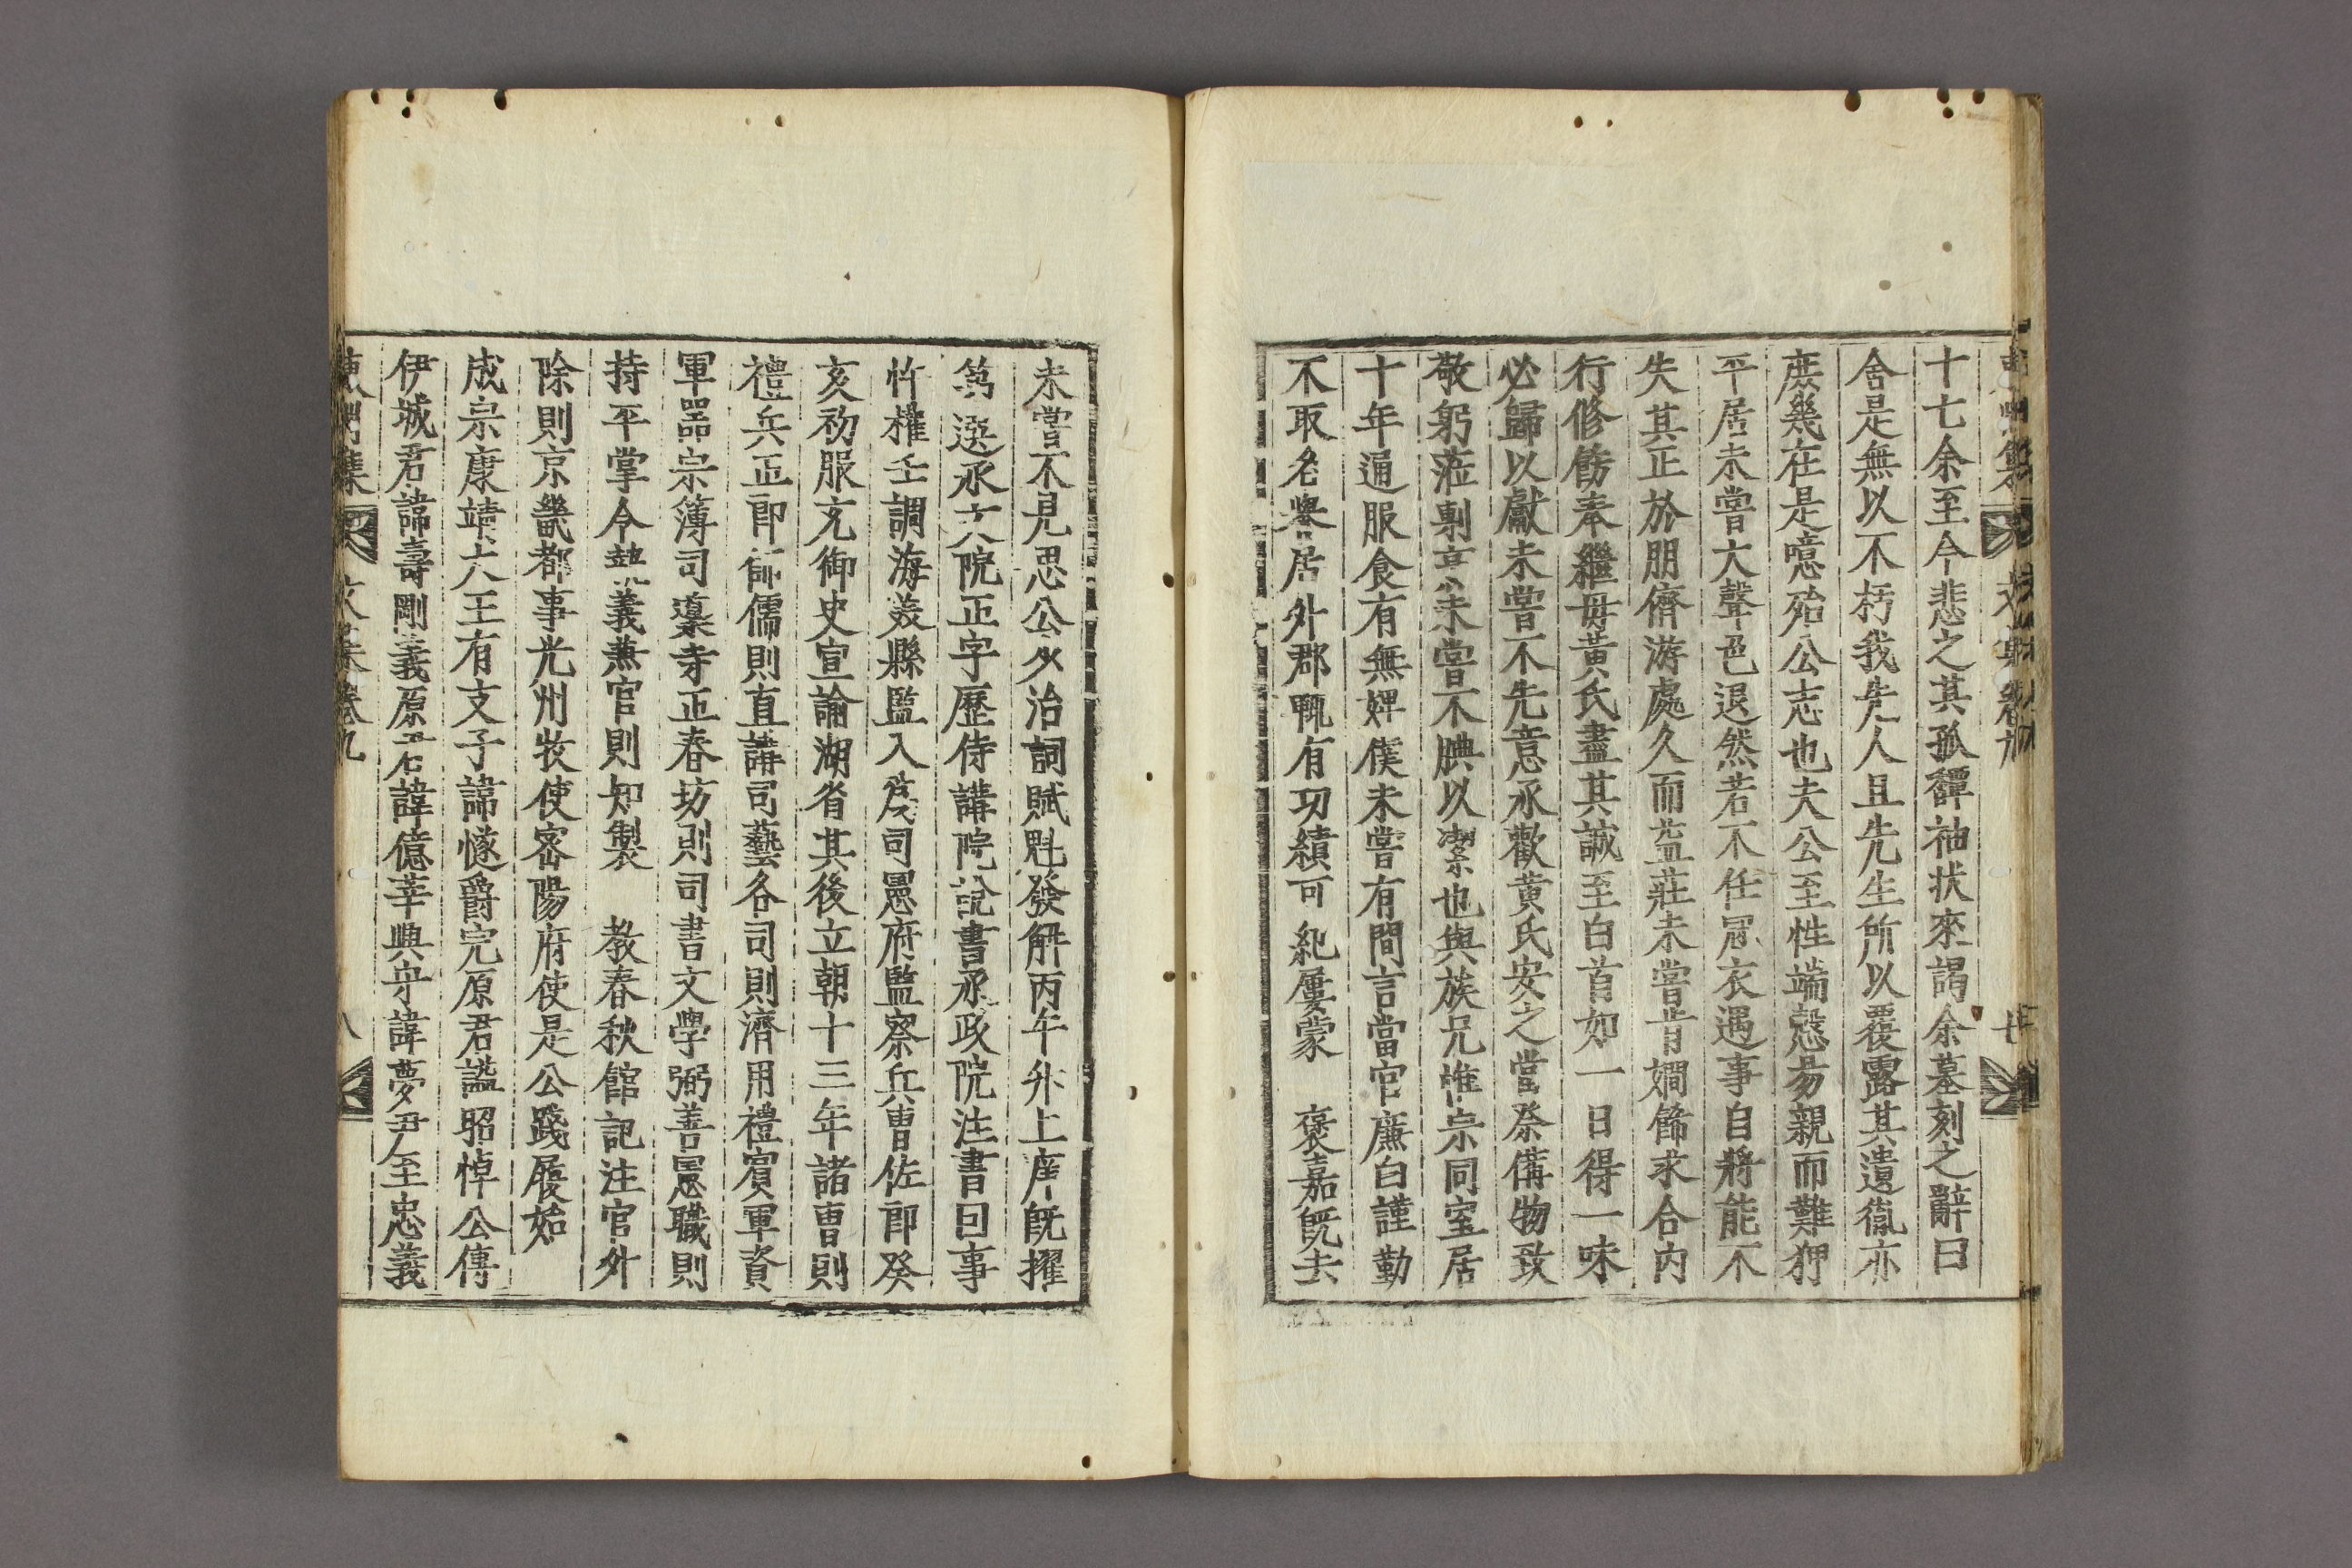 十七余至今悲之其孤鐔袖状來謁余墓刻之辭曰
舍是無以不朽我先人且先生所以覆露其遺胤亦
庶幾在是噫殆公志也夫公至性端慤昜親而難狎
平居未嘗大聲色退然若不任冠衣遇事自將能不
失其正於朋儕游處久而益莊未嘗肯嫺餙求合内
行修飭奉繼毋黄氏盡其誠至白首如一日得一味
必歸以獻未嘗不先意承歡黄氏安之當祭備物致
敬躬蒞剸亨公未嘗不腆以潔也與族兄惟宗同室居
十年通服食有無婢僕未嘗有間言當官廉白謹勤
不取名譽居外郡輒有功績可紀屢蒙　褒嘉旣去
未嘗不見思公少治詞賦魁發解丙午升上庠旣擢
第選承文院正字歷侍講院說書承政院注書曰事
忤權壬調海美縣監入爲司憲府監察兵曹佐郎癸
亥初服充御史宣諭湖省其後立朝十三年諸曹則
禮兵正郎師儒則直講司藝各司則濟用禮賓軍資
軍器宗簿司䆃寺正春坊則司書文學弼善憲職則
持平掌令執義兼官則知製　教春秋館記注官外
除則京畿都事光州牧使密陽府使是公踐履始
成宗康靖大王有支子諱㥞爵完原君諡昭悼公傳
伊城君諱壽剛義原君諱億莘興守諱夢尹至忠義
東州集　文集卷九　八